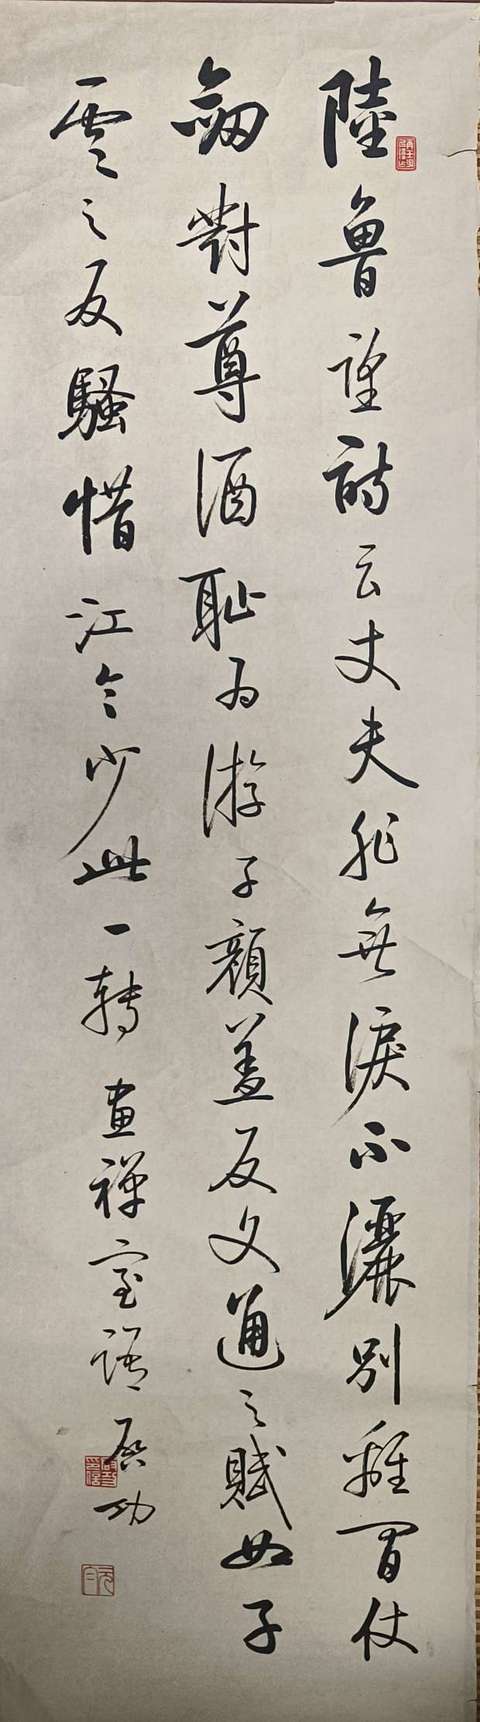 陸魯望詩云丈夫非無淚不灑別離間仗
劒對尊酒恥為游子顏蓋反文通之賦如子
雲之反騷惜江令少此一轉畫禪室語啟功